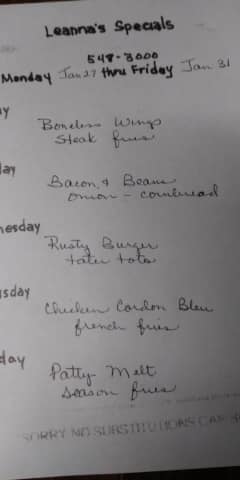 Leanna's Specials
548-3000
Monday Jan 27 thru Friday Jan 31
y
Boneless Wings
Steak fries
day
Bacon & Beans
onion - cornbread
nesday
Rusty Burger
tater tots
sday
Chicken Cordon Bleu
french fries
day
Patty Melt
season fries
SORRY NO SUBSTITUTIONS CAN